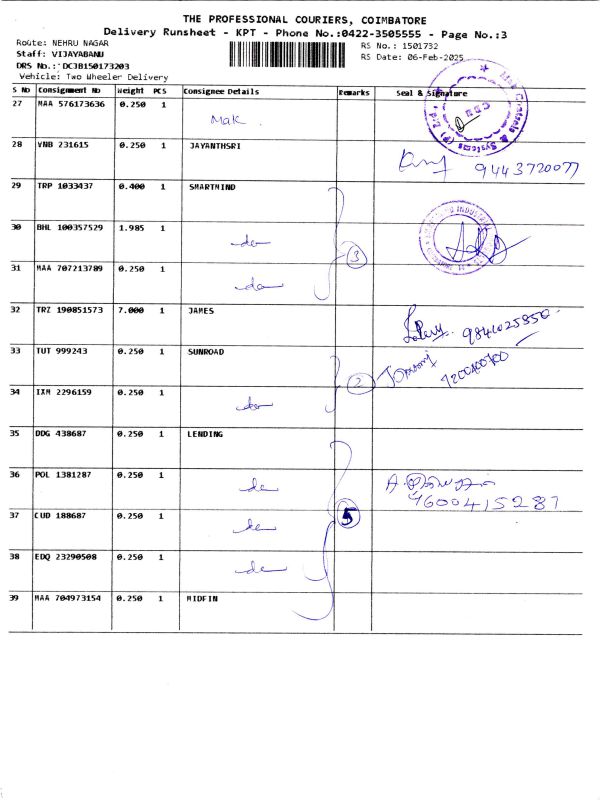 THE PROFESSIONAL COURIERS, COIMBATORE
Delivery Runsheet - KPT - Phone No.:0422-3505555 - Page No.:3
Route: NEHRU NAGAR
RS No.: 1501732
Staff: VIJAYABANU
RS Date: 06-Feb-2025
DRS No.: DCJB150173203
Vehicle: Two Wheeler Delivery
S No Consignment No Weight PCS Consignee Details Remarks Seal & Signature
27 MAA 576173636 0.250 1 Mak
28 VNB 231615 0.250 1 JAYANTHSRI 9443720077
29 TRP 1033437 0.400 1 SMARTMIND
30 BHL 100357529 1.985 1 do 3
31 MAA 707213789 0.250 1 do
32 TRZ 190851573 7.000 1 JAMES 9841025850
33 TUT 999243 0.250 1 SUNROAD
34 IXM 2296159 0.250 1 do 2 7200400700
35 DDG 438687 0.250 1 LENDING
36 POL 1381287 0.250 1 do 9600415287
37 CUD 188687 0.250 1 do 5
38 EDQ 23290508 0.250 1 do
39 MAA 704973154 0.250 1 MIDFIN